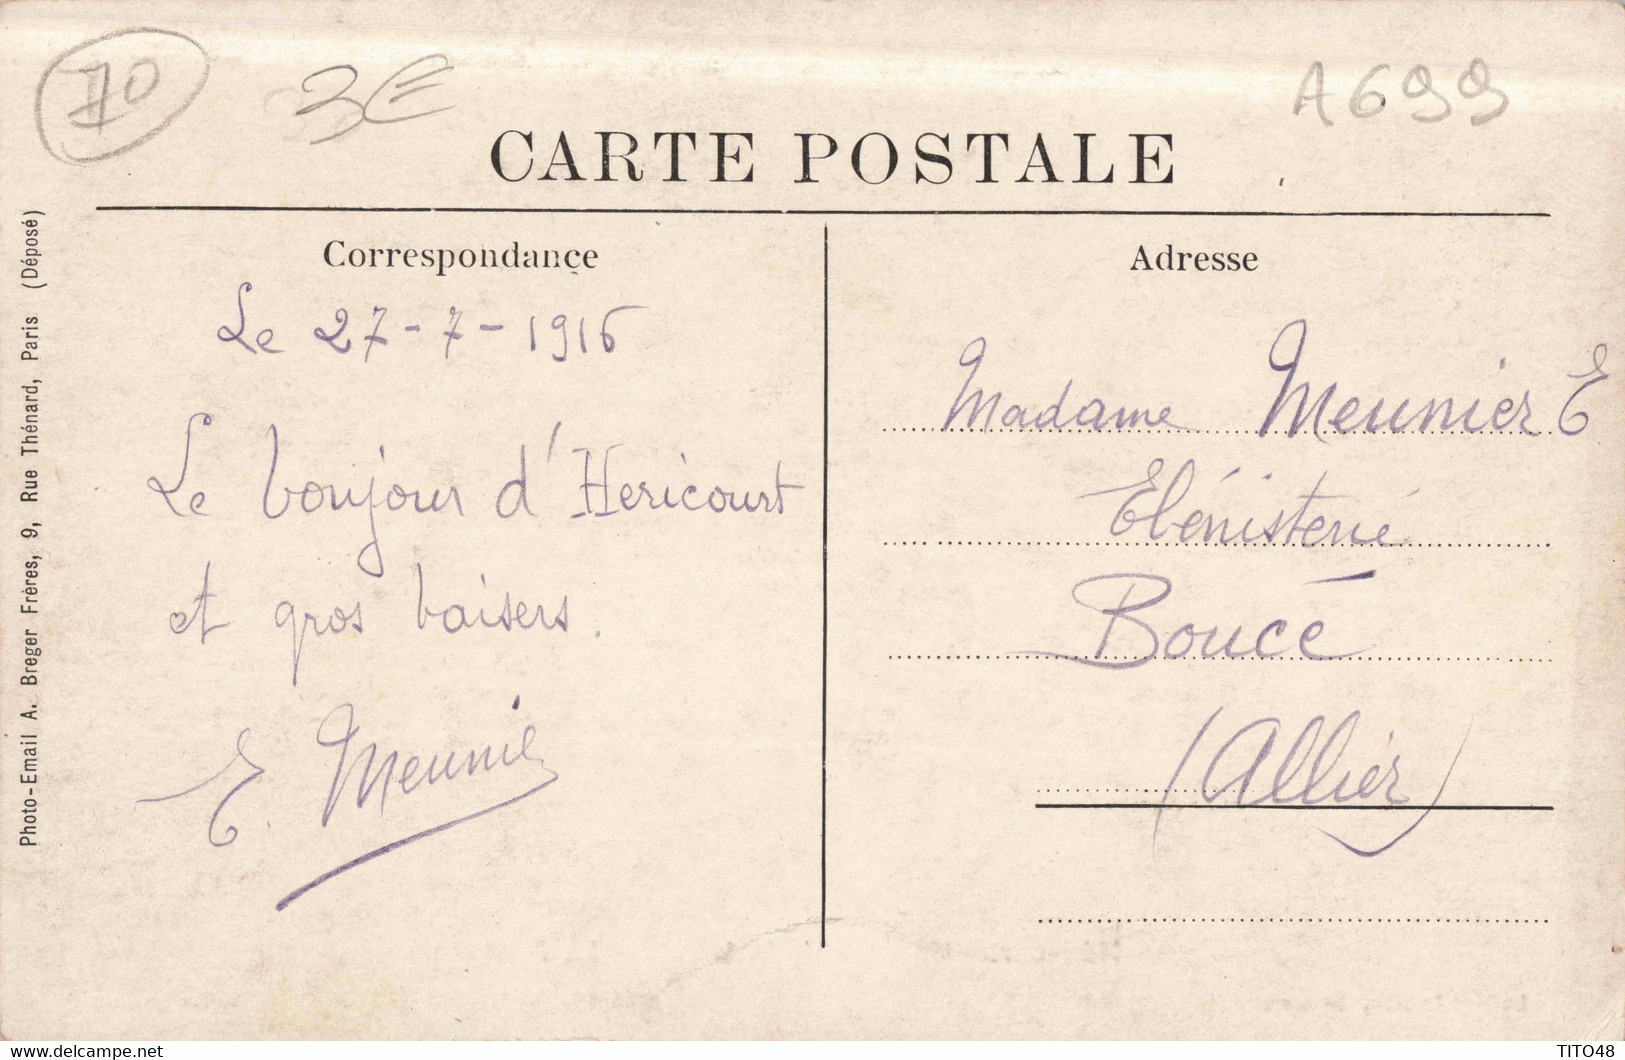 70
3€
A699
CARTE POSTALE
Correspondance
Le 27-7-1916
Le bonjour d'Hericourt
et gros baisers.
E. Meunier
Adresse
Madame Meunier E
Ebénisterie
Boucé
(Allier)
Photo-Email A. Breger Frères, 9, Rue Thénard, Paris (Déposé)
delcampe.net
TITO48